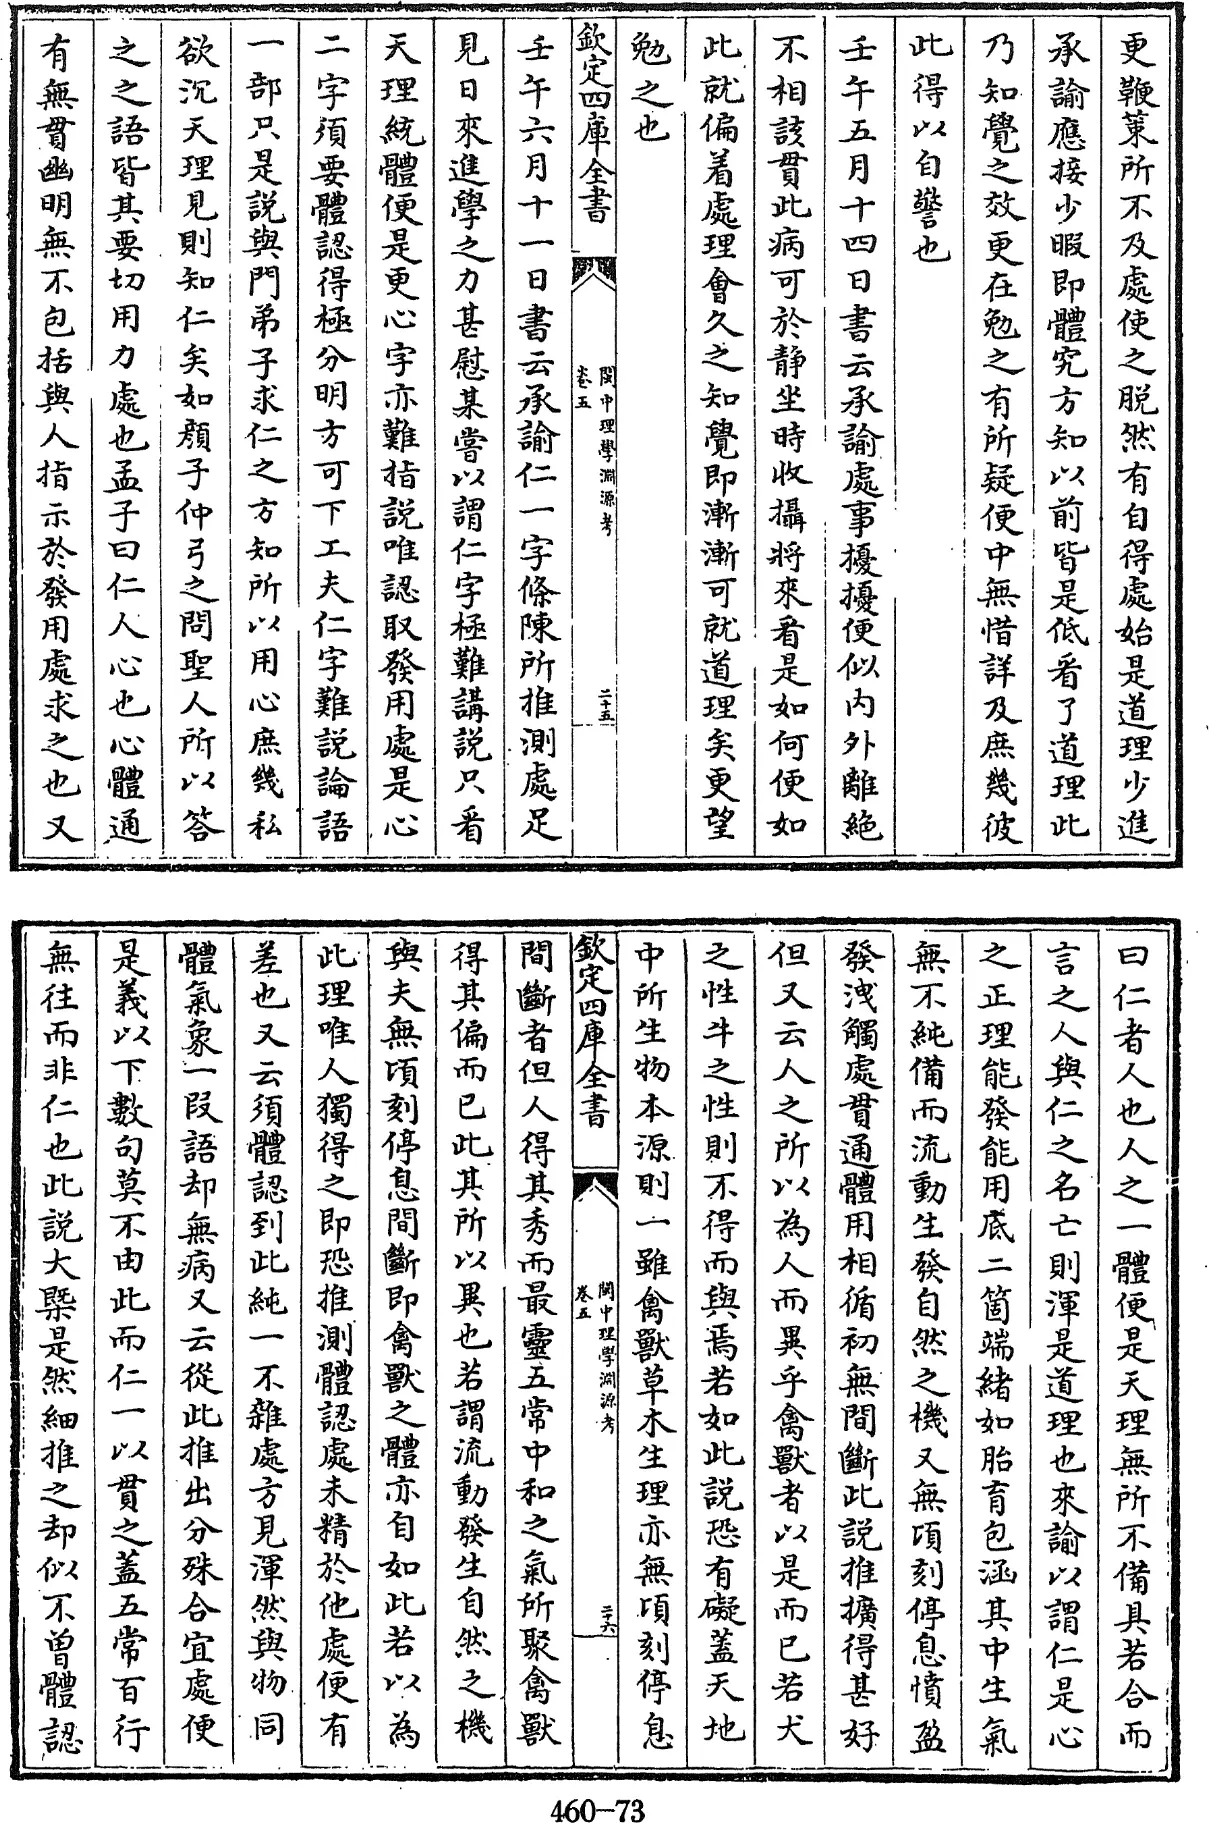 更鞭䇿所不及處使之脱然有自得處始是道理少進
承諭應接少暇即體究方知以前皆是低看了道理此
乃知覺之效更在勉之有所疑便中無惜詳及庶幾彼
此得以自警也
壬午五月十四日書云承諭處事擾擾便似内外離絶
不相該貫此病可於静坐時收攝將來看是如何便如
此就偏着處理㑹久之知覺即漸漸可就道理矣更望
勉之也
欽定四庫全書
閩中理學淵源考
卷五
二十五
壬午六月十一日書云承諭仁一字條陳所推測處足
見日來進學之力甚慰某嘗以謂仁字極難講説只看
天理統體便是更心字亦難指説唯認取發用處是心
二字須要體認得極分明方可下工夫仁字難説論語
一部只是説與門弟子求仁之方知所以用心庶幾私
欲沉天理見則知仁矣如顔子仲弓之問聖人所以答
之之語皆其要切用力處也孟子曰仁人心也心體通
有無貫幽明無不包括與人指示於發用處求之也又
曰仁者人也人之一體便是天理無所不備具若合而
言之人與仁之名亡則渾是道理也來諭以謂仁是心
之正理能發能用底二箇端緒如胎育包涵其中生氣
無不純備而流動生發自然之機又無頃刻停息憤盈
發洩觸處貫通體用相循初無間斷此説推擴得甚好
但又云人之所以為人而異乎禽獸者以是而已若犬
之性牛之性則不得而與焉若如此説恐有礙蓋天地
中所生物本源則一雖禽獸草木生理亦無頃刻停息
欽定四庫全書
閩中理學淵源考
卷五
二十六
間斷者但人得其秀而最靈五常中和之氣所聚禽獸
得其偏而已此其所以異也若謂流動發生自然之機
與夫無頃刻停息間斷即禽獸之體亦自如此若以為
此理唯人獨得之即恐推測體認處未精於他處便有
差也又云須體認到此純一不雜處方見渾然與物同
體氣象一段語却無病又云從此推出分殊合宜處便
是義以下數句莫不由此而仁一以貫之蓋五常百行
無往而非仁也此説大槩是然細推之却似不曽體認
460-73